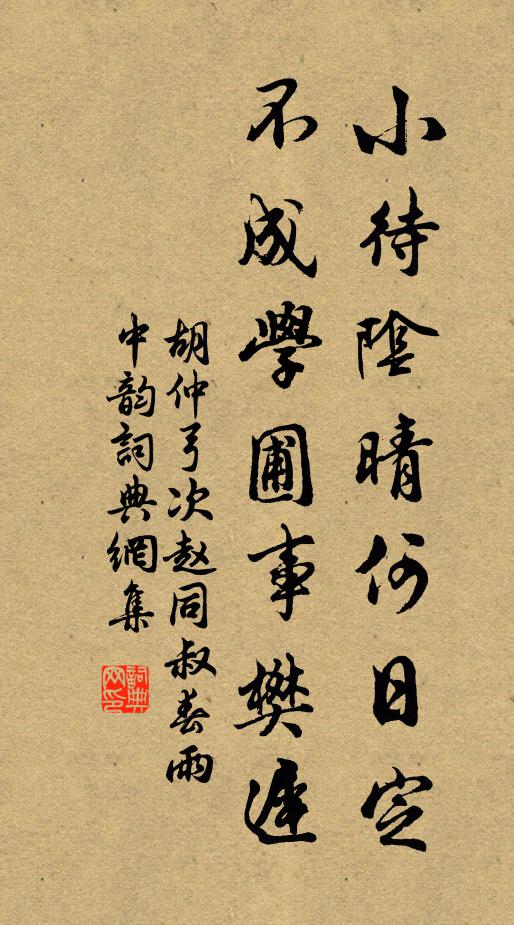 小待陰晴何日定
不成學圃事樊遲
胡仲弓次赵同叔春雨
中韵詞典網集
詞典
网印